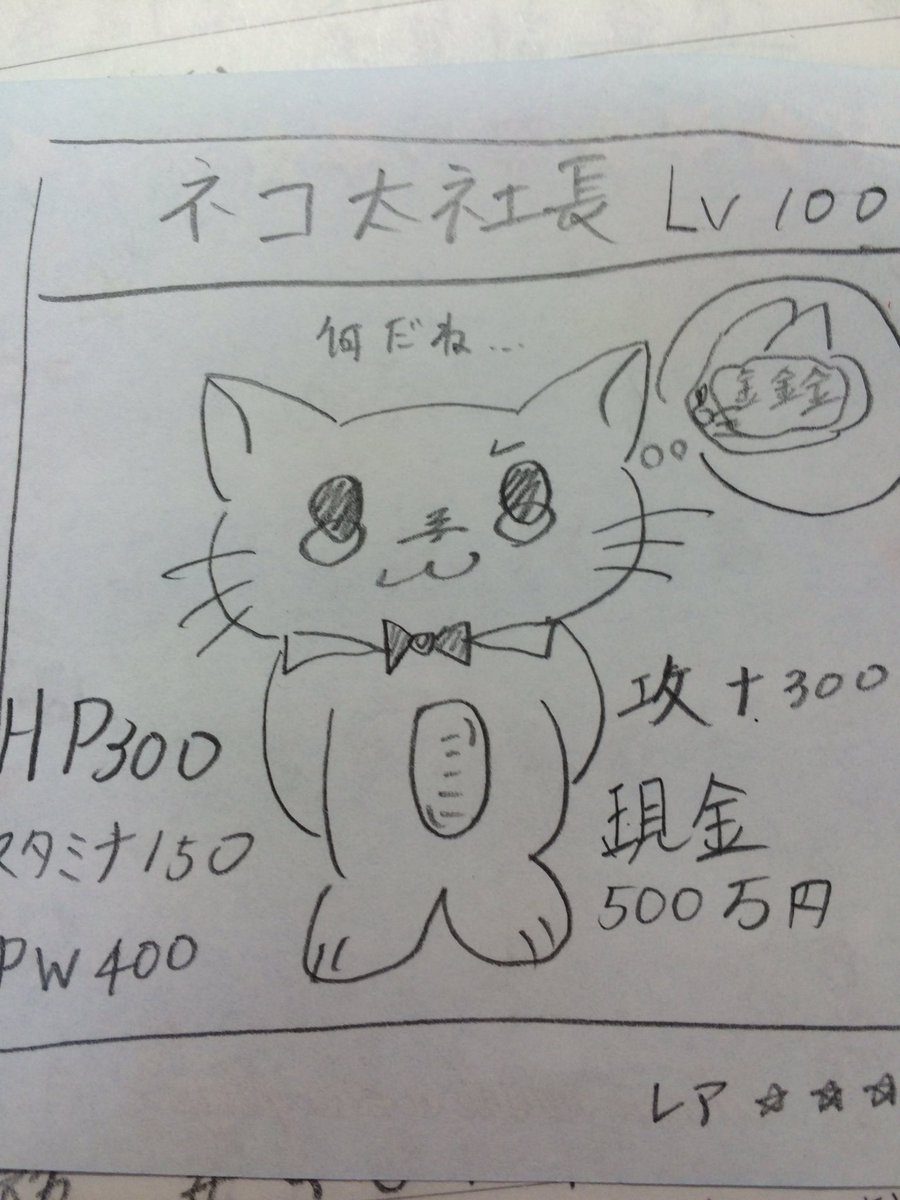 ネコ太社長 Lv 100
何だね…
金金金
HP300
スタミナ150
PW400
攻+300
現金
500万円
レア ☆☆☆